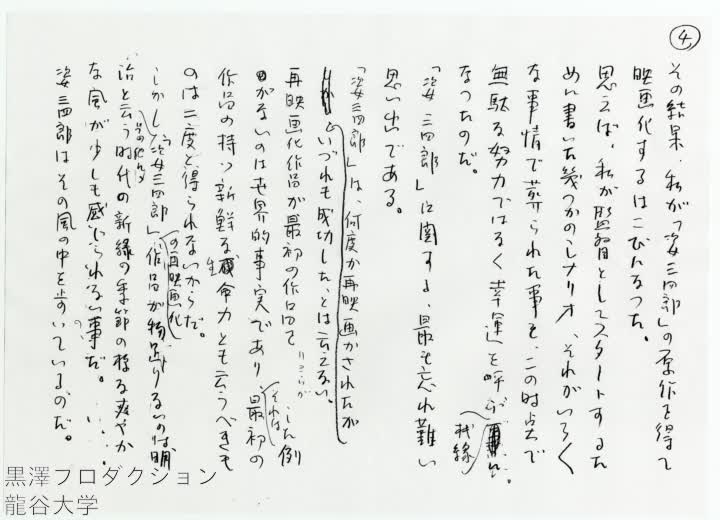 4
その結果、私が「姿三四郎」の原作を得て
映画化するはこびになった。
思えば、私が監督としてスタートするた
めに書いた幾つかのシナリオ、それがいろ〱
な事情で葬られた事も、この時点で
無駄な努力ではなく幸運を呼ぶ
契線
なったのだ。
「姿三四郎」に関する、最も忘れ難い
思い出である。
「姿三四郎」は、何度か再映画かされたが
いづれも成功したとは云えない。
再映画化作品が最初の作品を した例
がないのは世界的事実であり それは 最初の
作品の持つ新鮮な生命力とも云うべきも
のは二度と得られないからだ。
しかし「姿三四郎」の再映画化作品が物足りないのは明
治と云う時代の新緑の季節の様な爽やか
な風が少しも感じられない事だ。
姿三四郎はその風の中を歩いているのだ。
黒澤プロダクション
龍谷大学